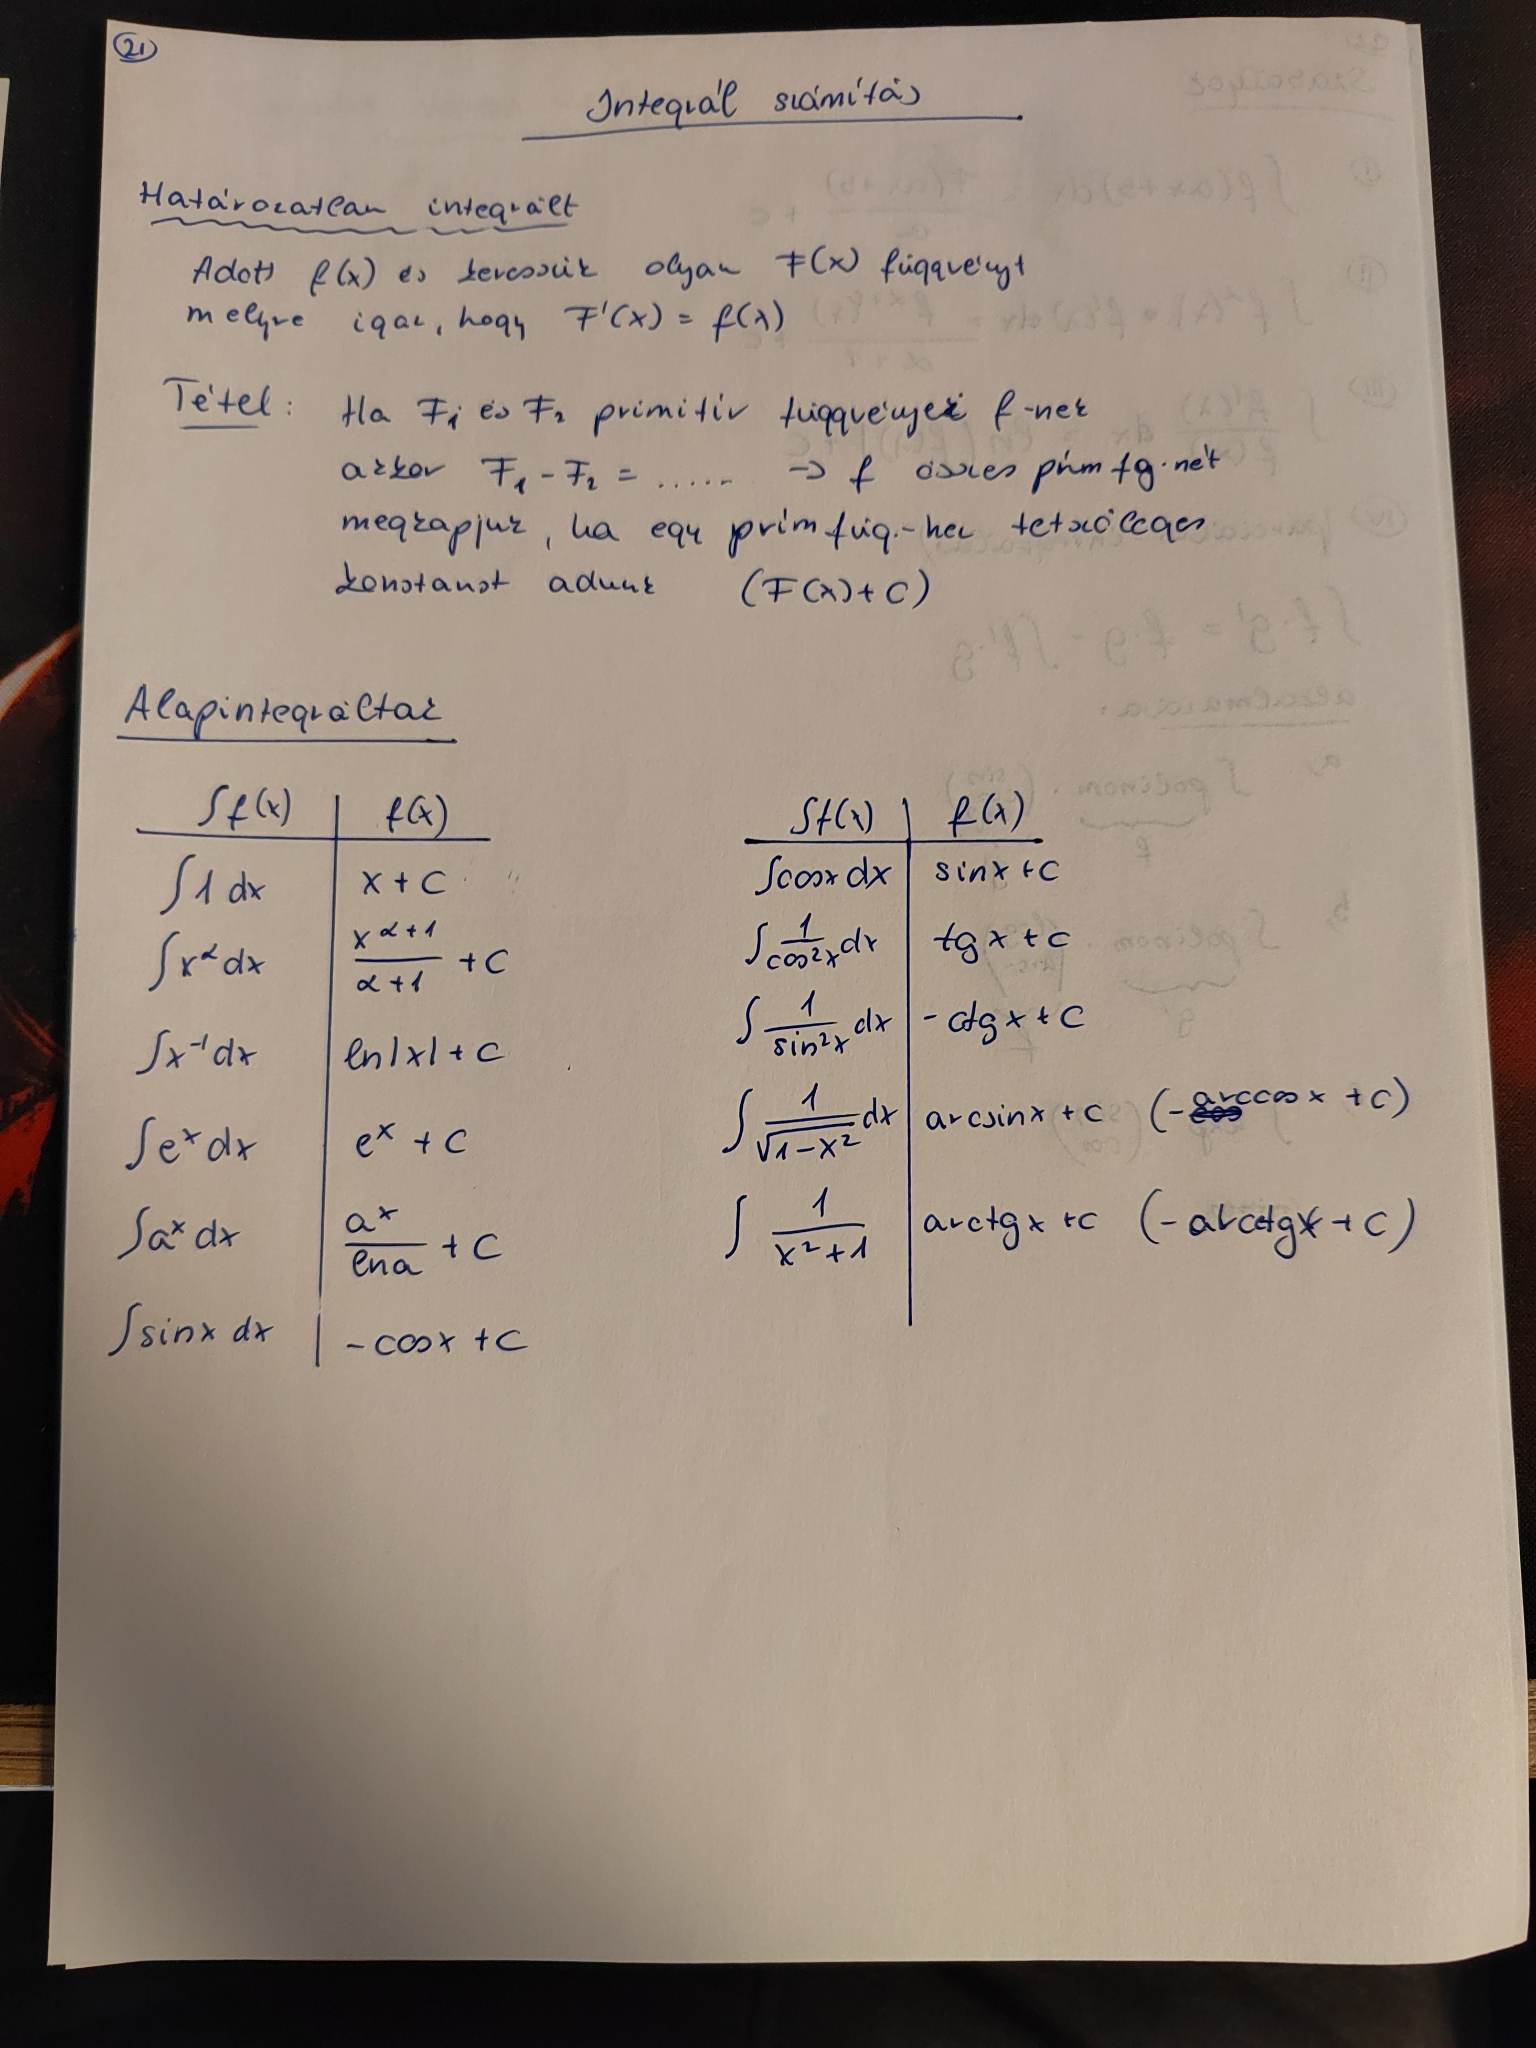 21
Integrál számítás
Határozatlan integrált
Adott f(x) és keressük olyan F(x) függvényt
melyre igaz, hogy F'(x) = f(x)
Tétel: Ha F₁ és F₂ primitív függvényei f-nek
akkor F₁ - F₂ = ...... → f összes prim fg.-nét
megkapjuk, ha egy prim füg.-hez tetszőleges
konstanst adunk (F(x) + C)
Alapintegráltak
∫f(x) | f(x)
∫1 dx | x + C
∫x^α dx | x^(α+1)/(α+1) + C
∫x⁻¹ dx | ln|x| + C
∫e^x dx | e^x + C
∫a^x dx | a^x/ln a + C
∫sin x dx | -cos x + C
∫f(x) | f(x)
∫cos x dx | sin x + C
∫1/cos²x dx | tg x + C
∫1/sin²x dx | -ctg x + C
∫1/√(1-x²) dx | arcsin x + C (-arccos x + C)
∫1/(x²+1) | arctg x + C (-arcctg x + C)